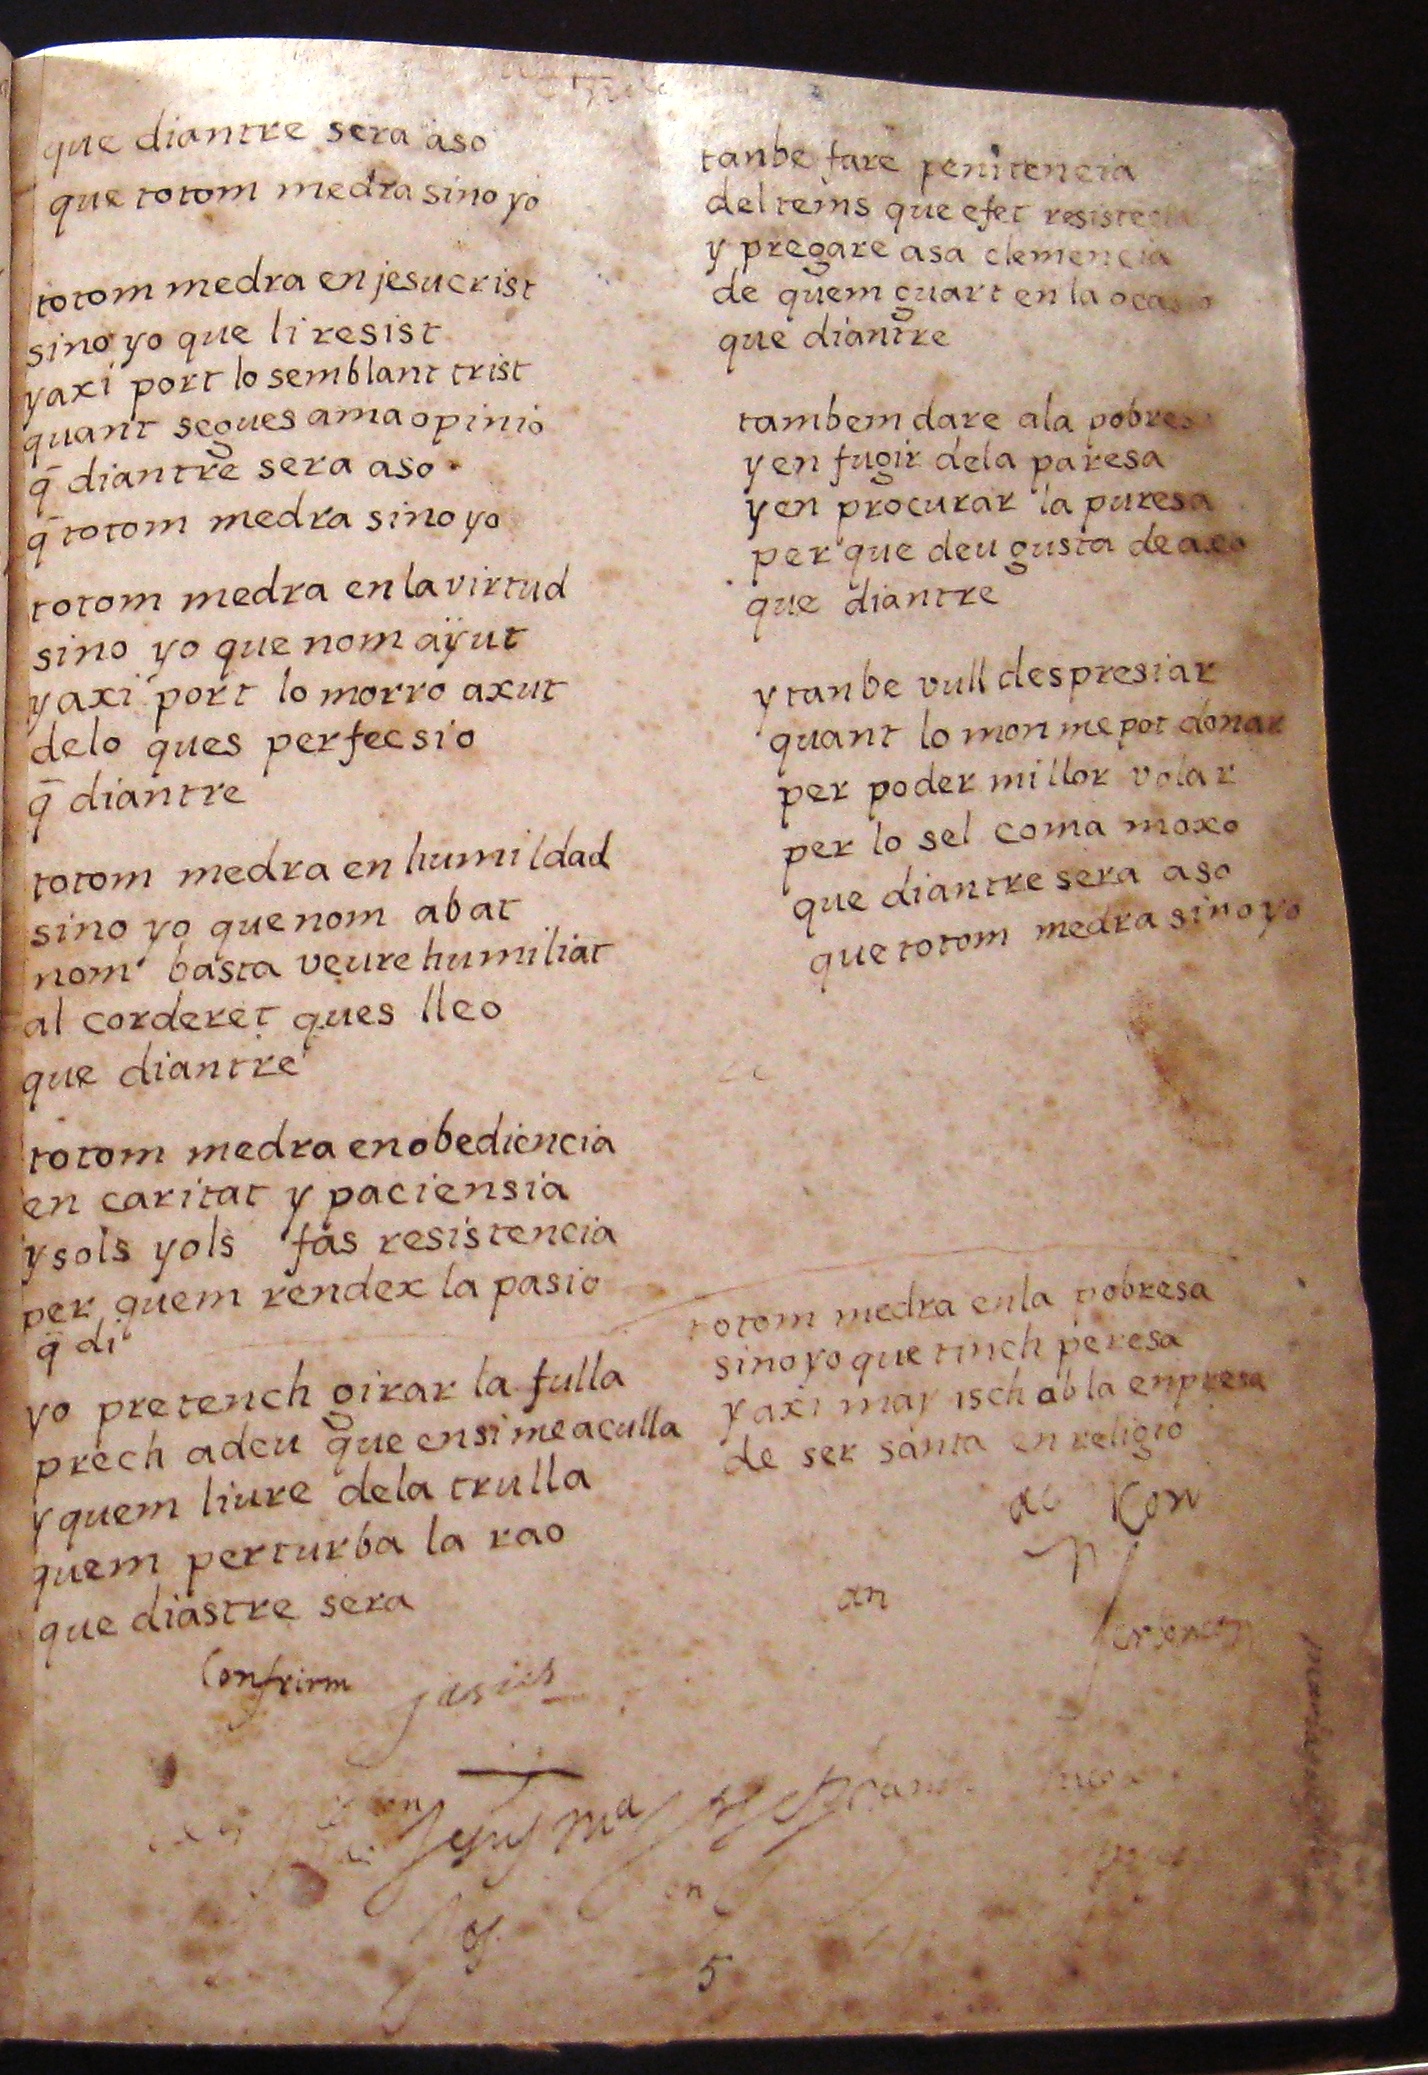 que diantre sera aso
que totom medra sino yo
totom medra en jesucrist
sino yo que li resist
yaxi port lo semblant trist
quant segues ama opinio
q̄ diantre sera aso
q̄ totom medra sino yo
totom medra en la virtud
sino yo que nom aÿut
yaxi port lo morro axut
delo ques perfecsio
q̄ diantre
totom medra en humildad
sino yo que nom abat
nom basta veure humiliat
al corderet ques lleo
que diantre
totom medra en obediencia
en caritat y paciensia
y sols yols fas resistencia
per quem rendex la pasio
q̄ di
yo pretench girar la fulla
prech adeu que ensi me aculla
y quem liure dela trulla
quem perturba la rao
que diastre sera
Confrirm
tanbe fare penitencia
del tems que e fet resistecia
y pregare asa clemencia
de quem guart en la ocasio
que diantre
tambem dare ala pobresa
y en fugir dela paresa
y en procurar la puresa
per que deu gusta de axo
que diantre
y tanbe vull despresiar
quant lo mon me pot donar
per poder millor volar
per lo sel coma moxo
que diantre sera aso
que totom medra sino yo
totom medra enla pobresa
sino yo que tinch peresa
y axi may isch ab la enpresa
de ser santa en religio
an
Jesus Ma
en
5